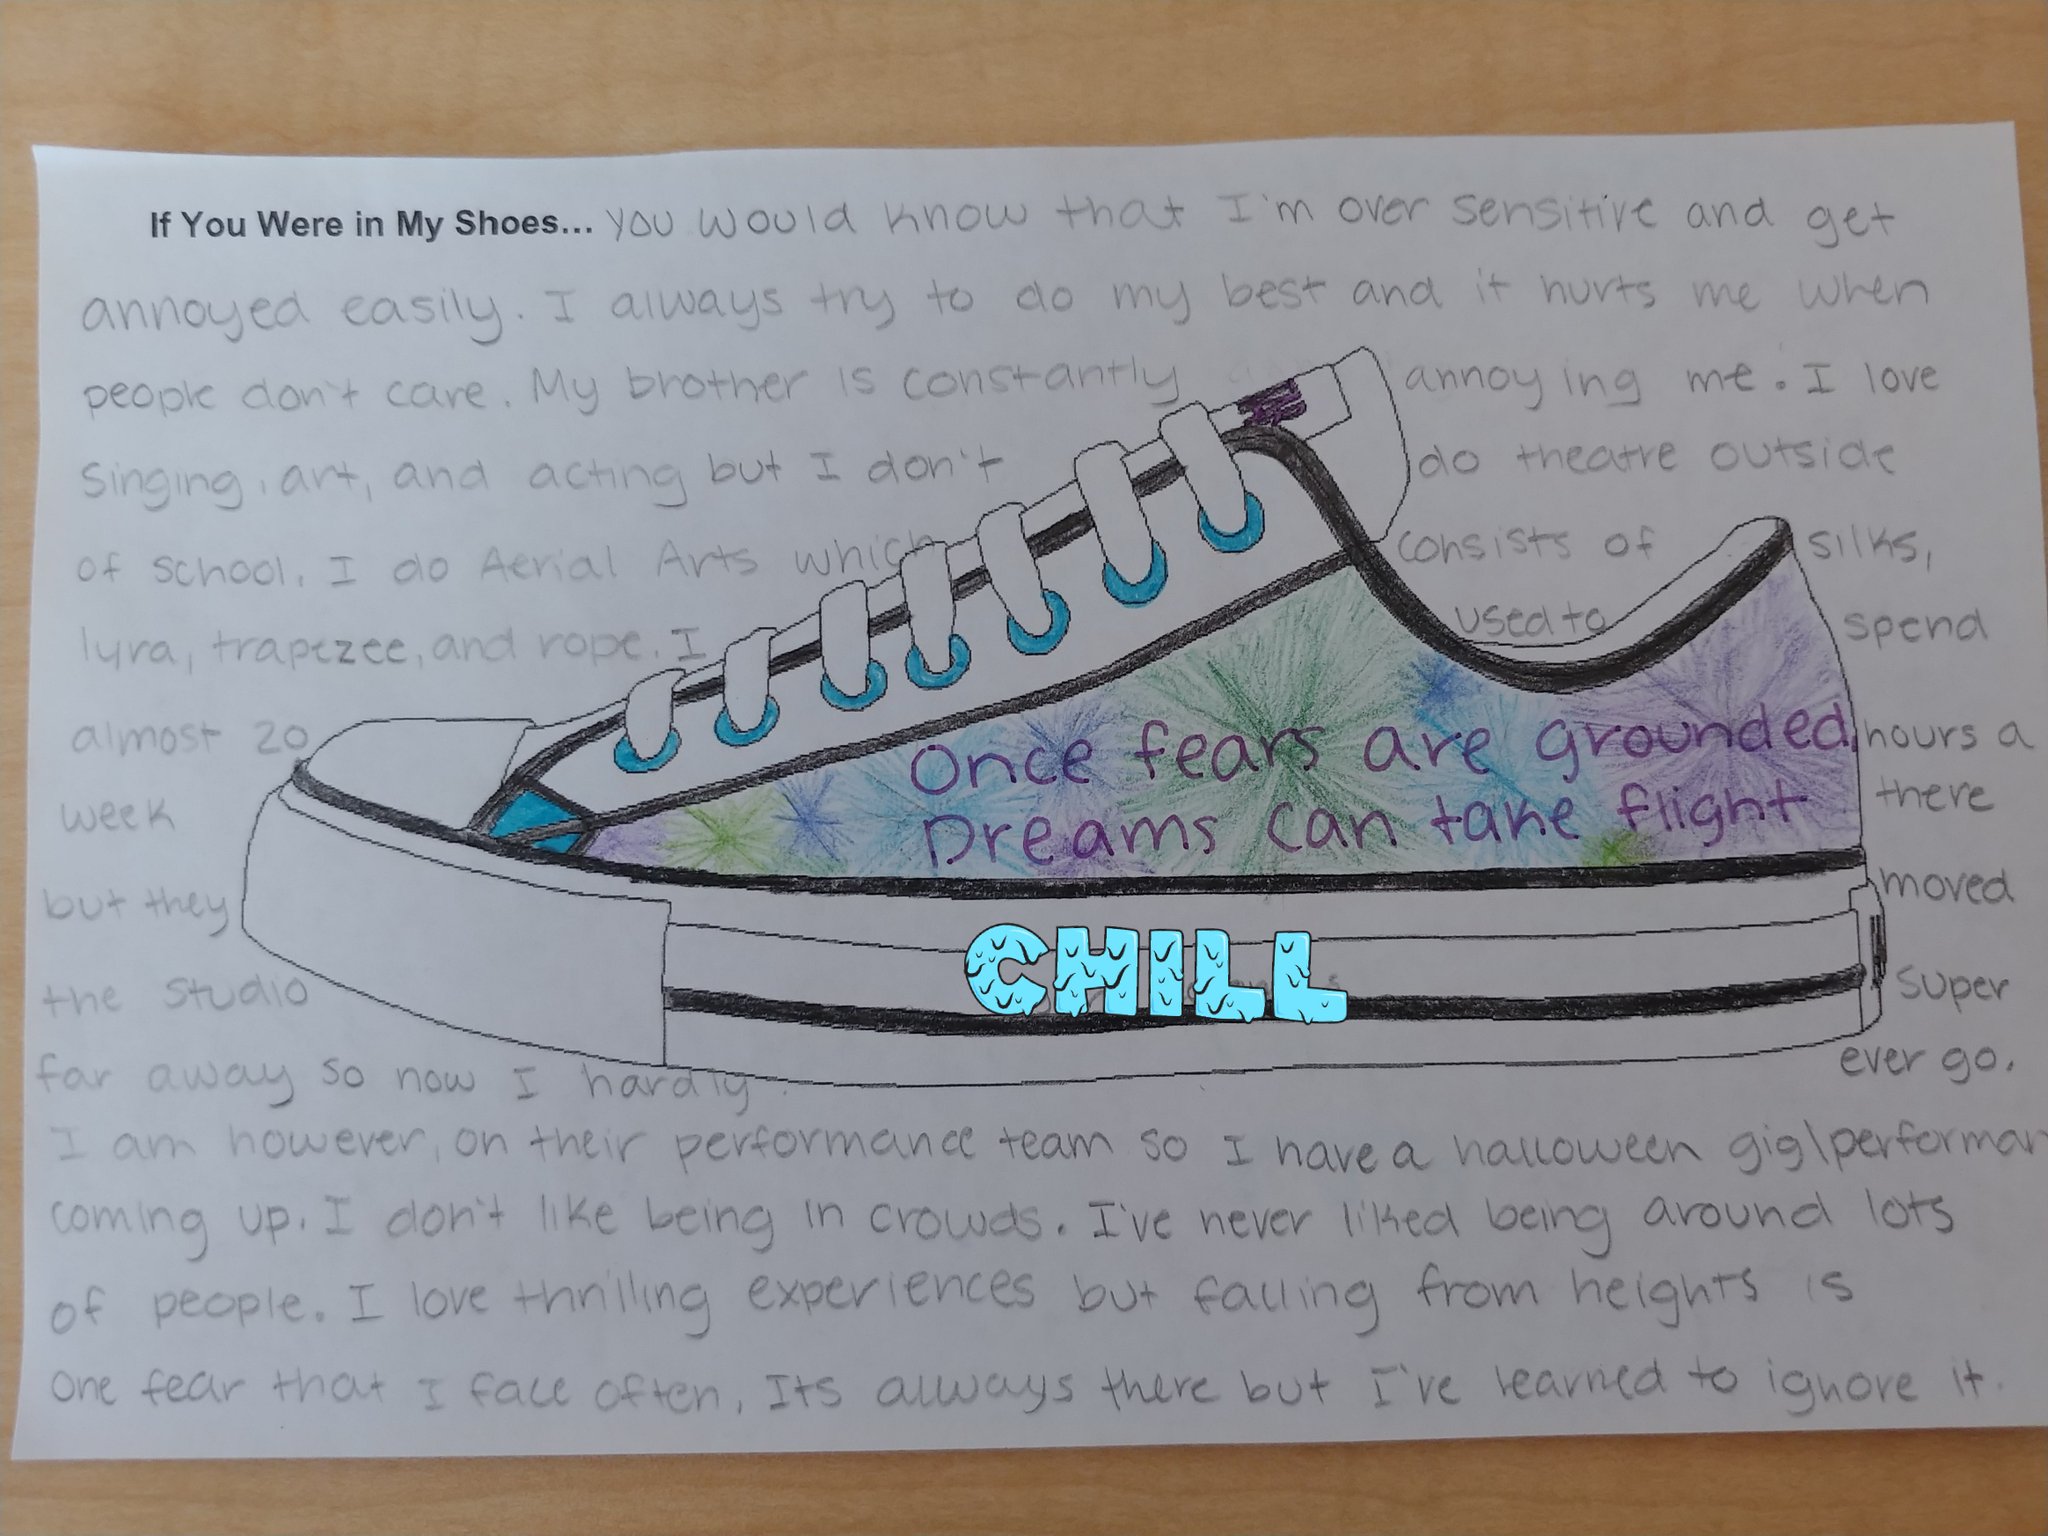 If You Were in My Shoes... you would know that I'm over sensitive and get
annoyed easily. I always try to do my best and it hurts me when
people don't care. My brother is constantly annoying me. I love
singing, art, and acting but I don't do theatre outside
of school. I do Aerial Arts which consists of silks,
lyra, trapezee, and rope. I used to spend
almost 20 hours a
week there
but they moved
the studio super
far away so now I hardly ever go.
I am however, on their performance team so I have a halloween gig\performan
coming up. I don't like being in crowds. I've never liked being around lots
of people. I love thrilling experiences but falling from heights is
one fear that I face often. Its always there but I've learned to ignore it.
Once fears are grounded,
Dreams can take flight
CHILL